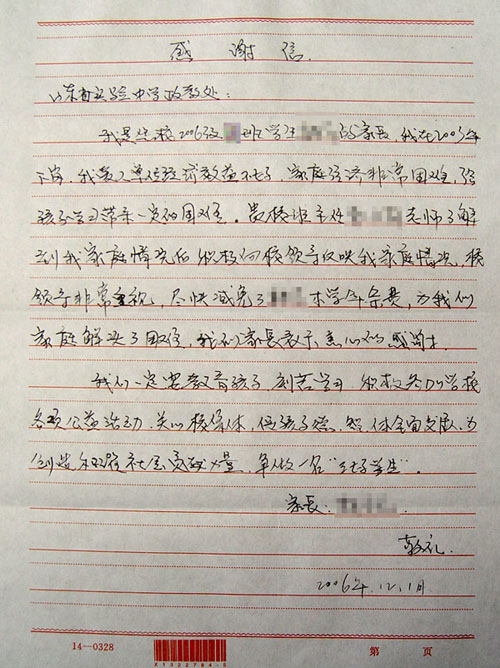 感谢信
山东省实验中学政教处：
我是贵校2006级 班学生 的家长，我在2003年
下岗，我爱人单位经济效益不好，家庭经济非常困难，给
孩子学习带来一定的困难。贵校班主任 老师了解
到我家庭情况后积极向校领导反映我家庭情况，校
领导非常重视，尽快减免了 本学年杂费，为我们
家庭解决了困难，我们家长表示衷心的感谢！
我们一定要教育孩子，刻苦学习，积极参加学校
各项公益活动，关心校集体，使孩子德、智、体全面发展，为
创造和谐社会贡献力量，争做一名“三好学生”。
家长：
敬礼。
2006年.12.1日
14—0328
X1322784-5
第 页